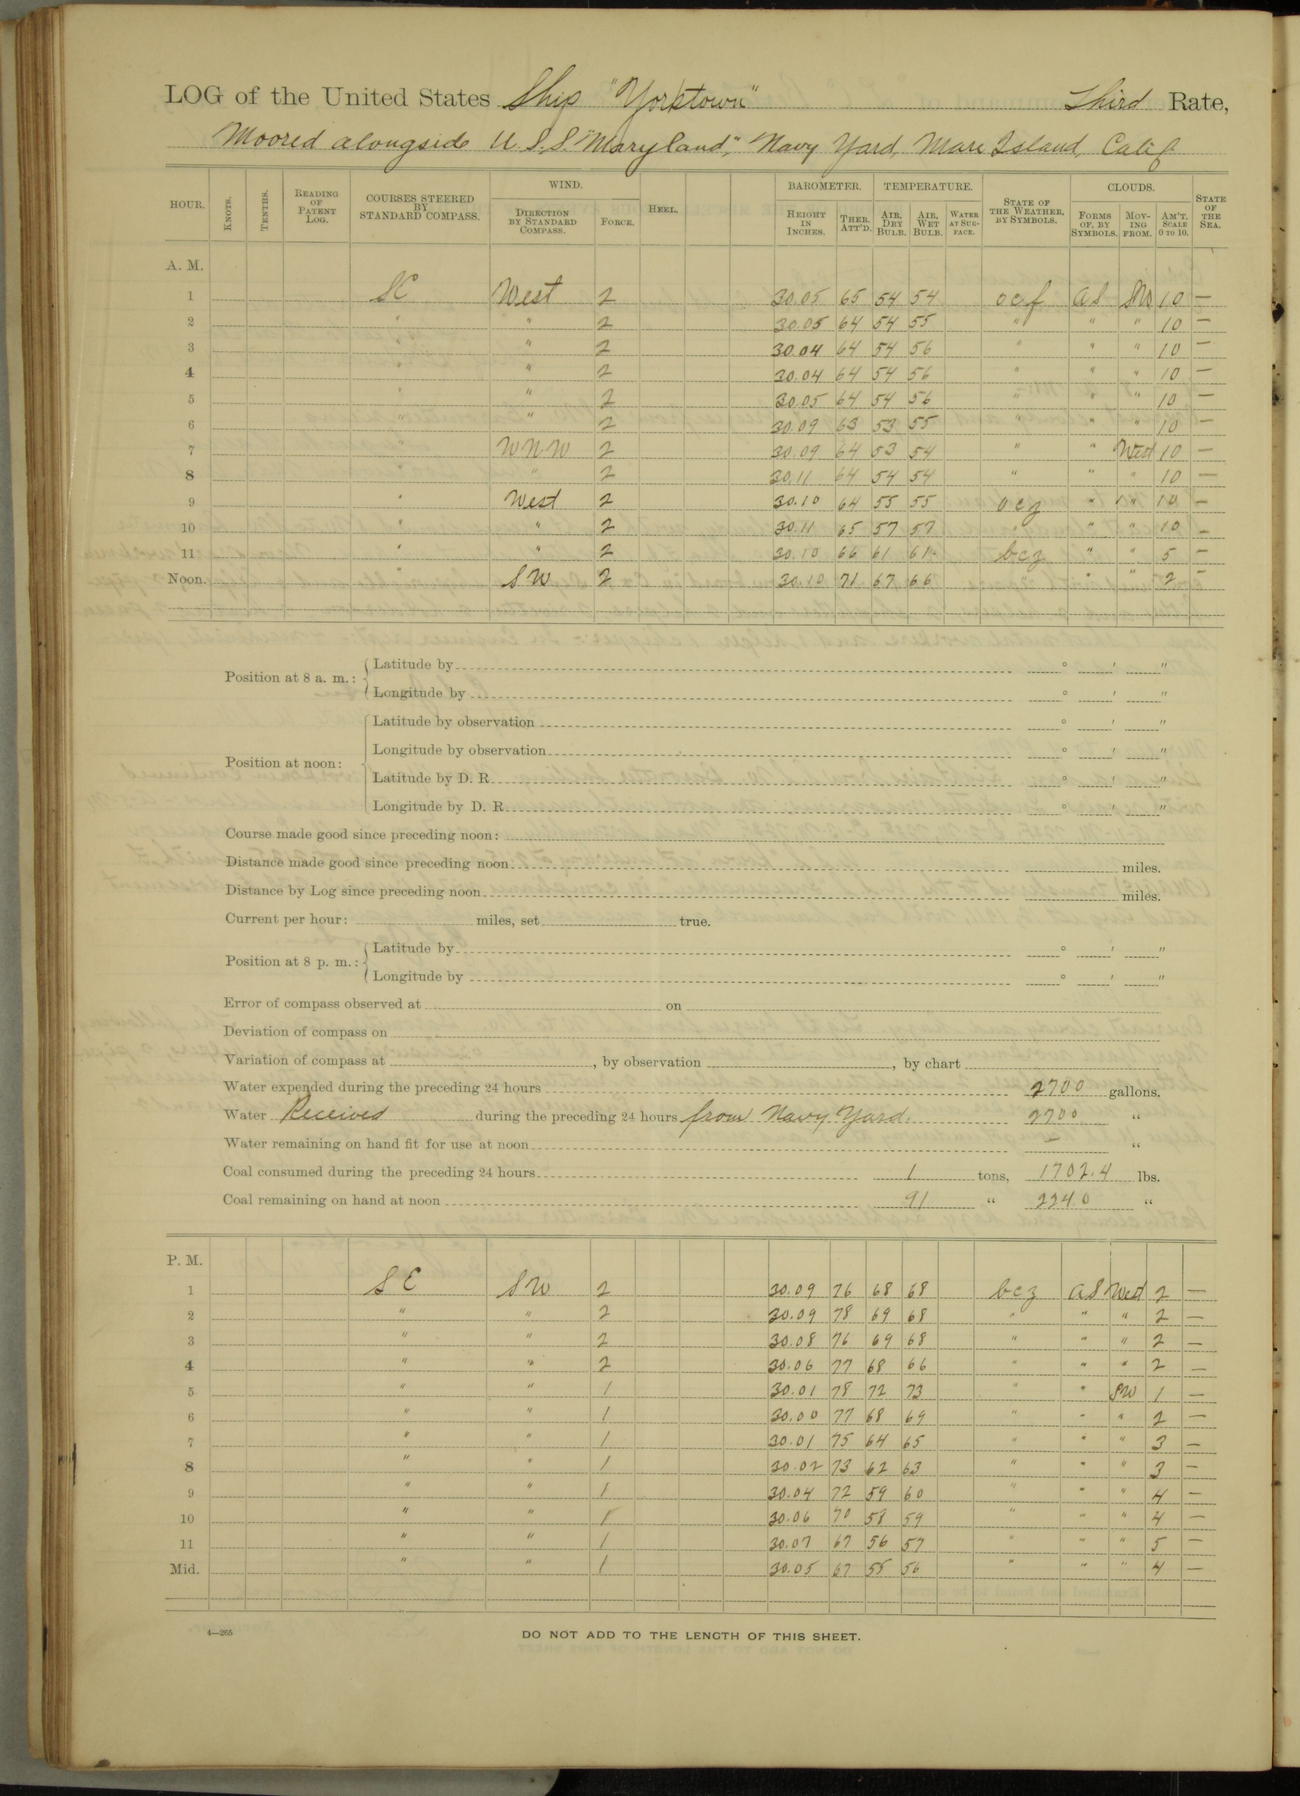 LOG of the United States Ship "Yorktown" Third Rate,
Moored alongside U.S.S. "Maryland," Navy Yard, Mare Island, Calif
HOUR. KNOTS. TENTHS. READING OF PATENT LOG. COURSES STEERED BY STANDARD COMPASS. WIND. DIRECTION BY STANDARD COMPASS. FORCE. HEEL. BAROMETER. HEIGHT IN INCHES. THER. ATT'D. TEMPERATURE. AIR, DRY BULB. AIR, WET BULB. WATER AT SURFACE. STATE OF THE WEATHER, BY SYMBOLS. CLOUDS. FORMS OF, BY SYMBOLS. MOVING FROM. AM'T. SCALE 0 TO 10. STATE OF THE SEA.
A. M.
1 SE West 2 30.05 65 54 54 ocf aS SW 10 —
2 " " 2 30.05 64 54 55 " " " 10 —
3 " " 2 30.04 64 54 56 " " " 10 —
4 " " 2 30.04 64 54 56 " " " 10 —
5 " " 2 30.05 64 54 56 " " " 10 —
6 " " 2 30.09 63 53 55 " " " 10 —
7 " WNW 2 30.09 64 53 54 " " West 10 —
8 " " 2 30.11 64 54 54 " " " 10 —
9 " West 2 30.10 64 55 55 ocz " " 10 —
10 " " 2 30.11 65 57 57 " " " 10 —
11 " " 2 30.10 66 61 61 bcz " " 5 —
Noon. " SW 2 30.10 71 67 66 " " " 2 —
Position at 8 a. m.: Latitude by ° ' "
Longitude by ° ' "
Position at noon: Latitude by observation ° ' "
Longitude by observation ° ' "
Latitude by D. R. ° ' "
Longitude by D. R. ° ' "
Course made good since preceding noon:
Distance made good since preceding noon miles.
Distance by Log since preceding noon miles.
Current per hour: miles, set true.
Position at 8 p. m.: Latitude by ° ' "
Longitude by ° ' "
Error of compass observed at on
Deviation of compass on
Variation of compass at , by observation , by chart
Water expended during the preceding 24 hours 2700 gallons.
Water Received during the preceding 24 hours from Navy Yard. 2700 "
Water remaining on hand fit for use at noon — "
Coal consumed during the preceding 24 hours 1 tons, 1702.4 lbs.
Coal remaining on hand at noon 91 " 2240 "
P. M.
1 SE SW 2 30.09 76 68 68 bcz aS West 2 —
2 " " 2 30.09 78 69 68 " " " 2 —
3 " " 2 30.08 76 69 68 " " " 2 —
4 " " 2 30.06 77 68 66 " " " 2 —
5 " " 1 30.01 78 72 73 " " SW 1 —
6 " " 1 30.00 77 68 69 " " " 2 —
7 " " 1 30.01 75 64 65 " " " 3 —
8 " " 1 30.02 73 62 63 " " " 3 —
9 " " 1 30.04 72 59 60 " " " 4 —
10 " " 1 30.06 70 58 59 " " " 4 —
11 " " 1 30.07 67 56 57 " " " 5 —
Mid. " " 1 30.05 67 55 56 " " " 4 —
4—265
DO NOT ADD TO THE LENGTH OF THIS SHEET.